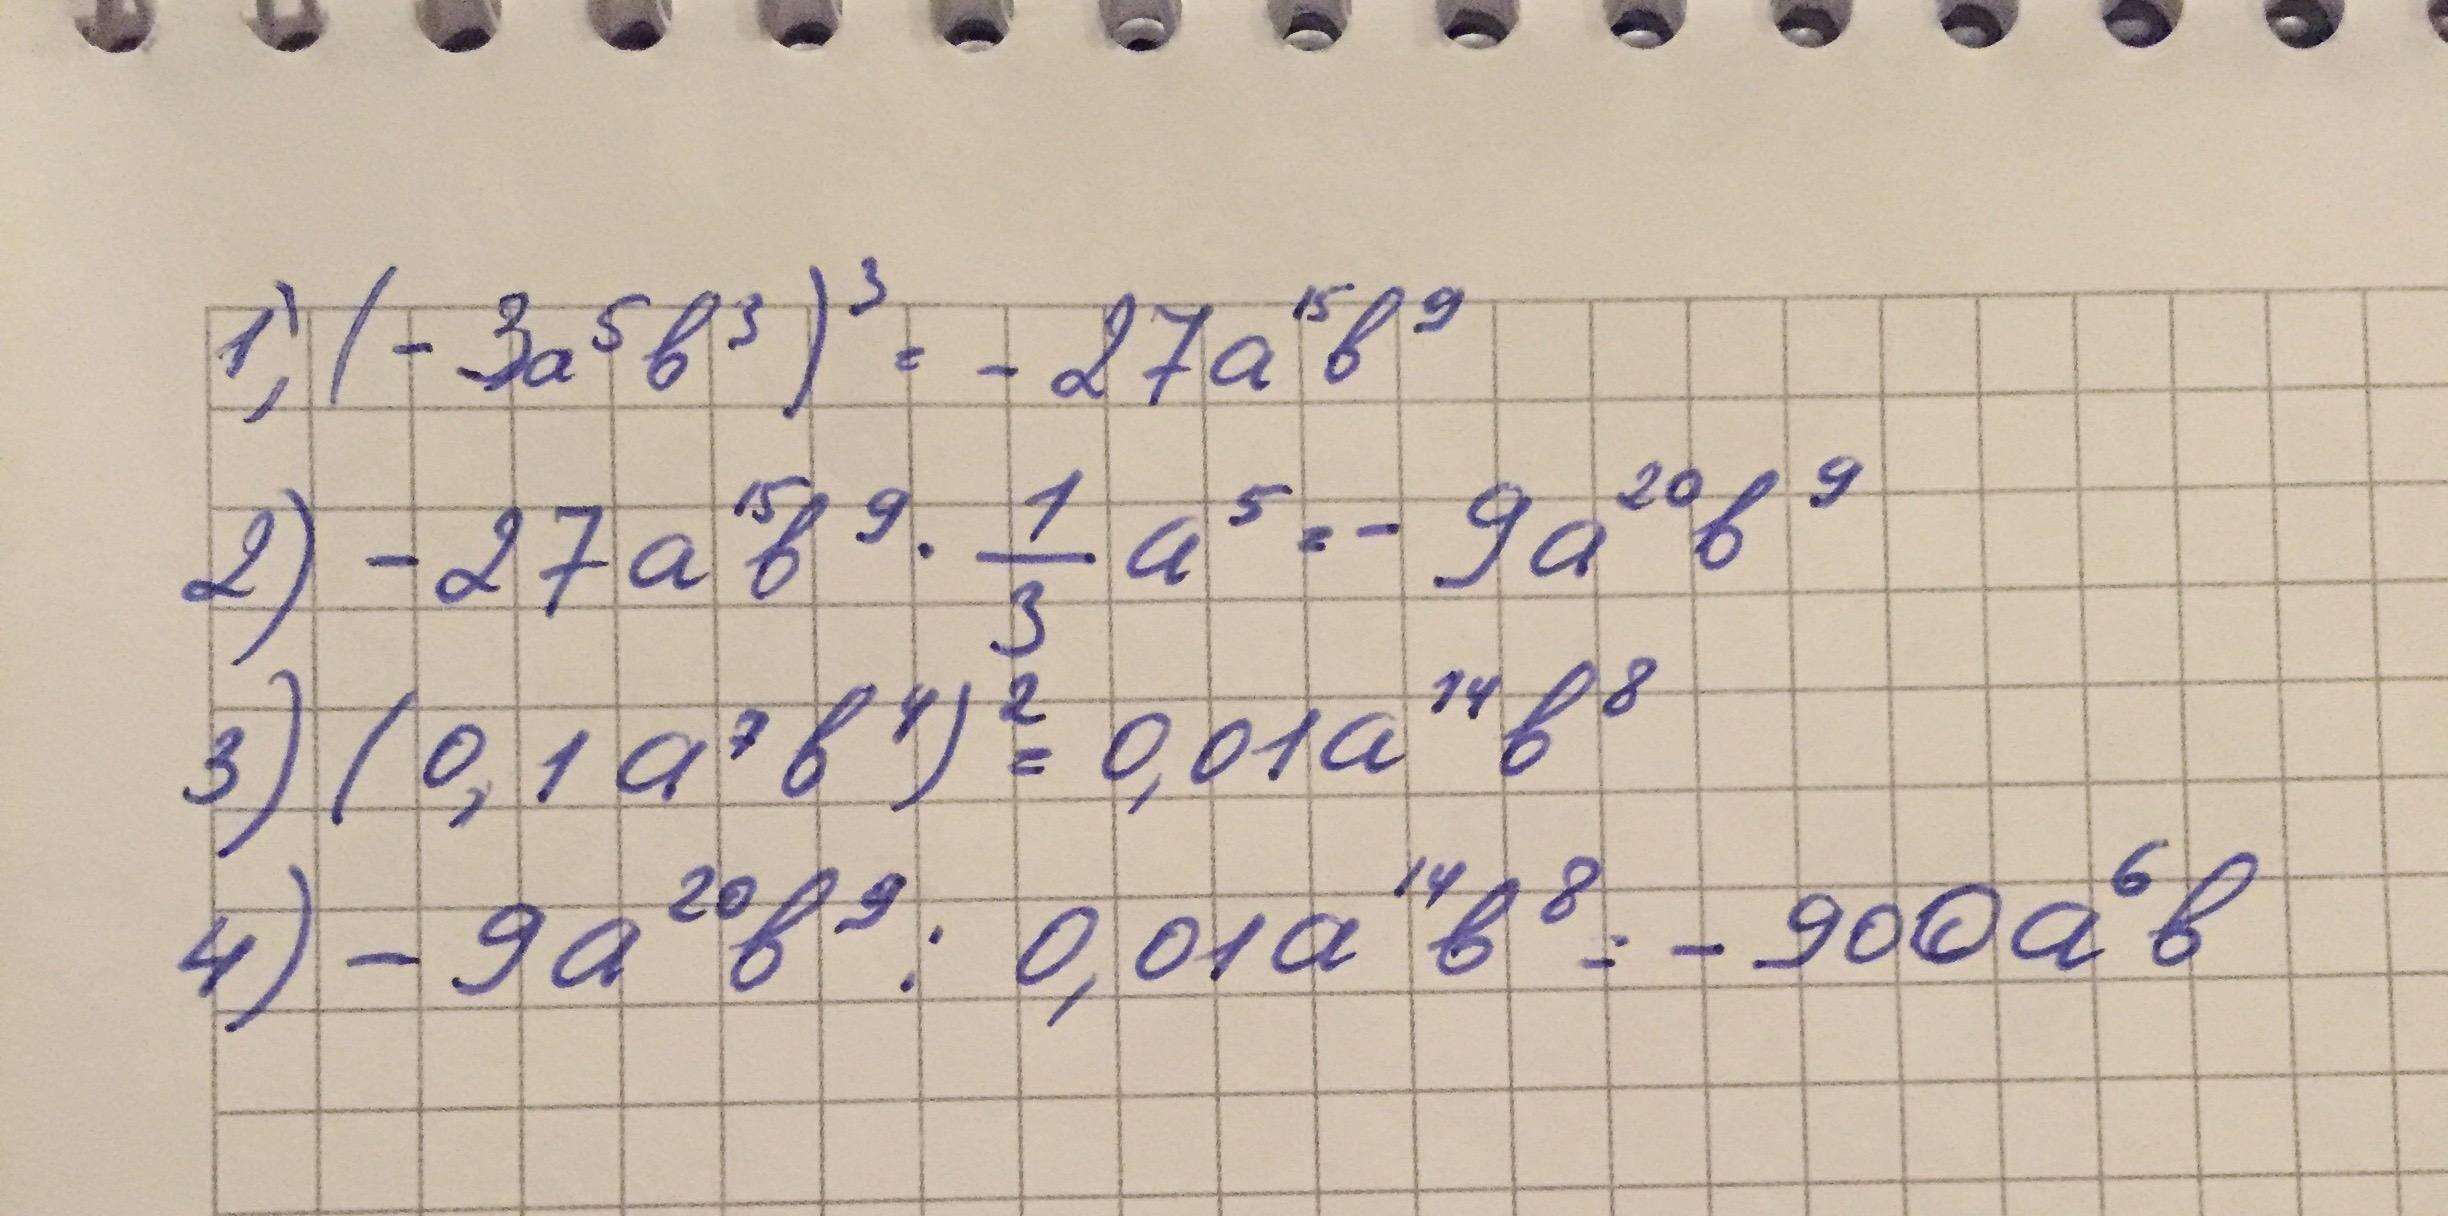 1) (-3a⁵b³)³ = -27a¹⁵b⁹
2) -27a¹⁵b⁹ · 1/3 a⁵ = -9a²⁰b⁹
3) (0,1a⁷b⁴)² = 0,01a¹⁴b⁸
4) -9a²⁰b⁹ : 0,01a¹⁴b⁸ = -900a⁶b